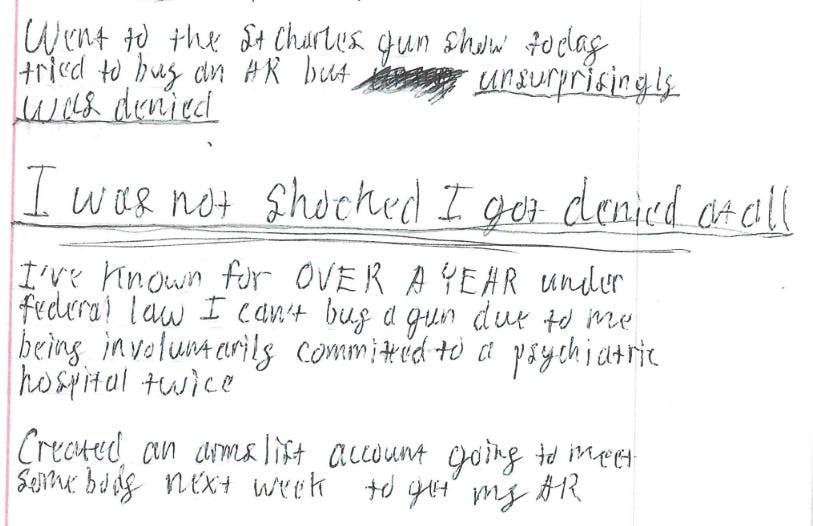 Went to the St Charles gun show today
tried to buy an AR but unsurprisingly
was denied
I was not shocked I got denied at all
I've known for OVER A YEAR under
federal law I can't buy a gun due to me
being involuntarily committed to a psychiatric
hospital twice
Created an armslist account going to meet
somebody next week to get my AR